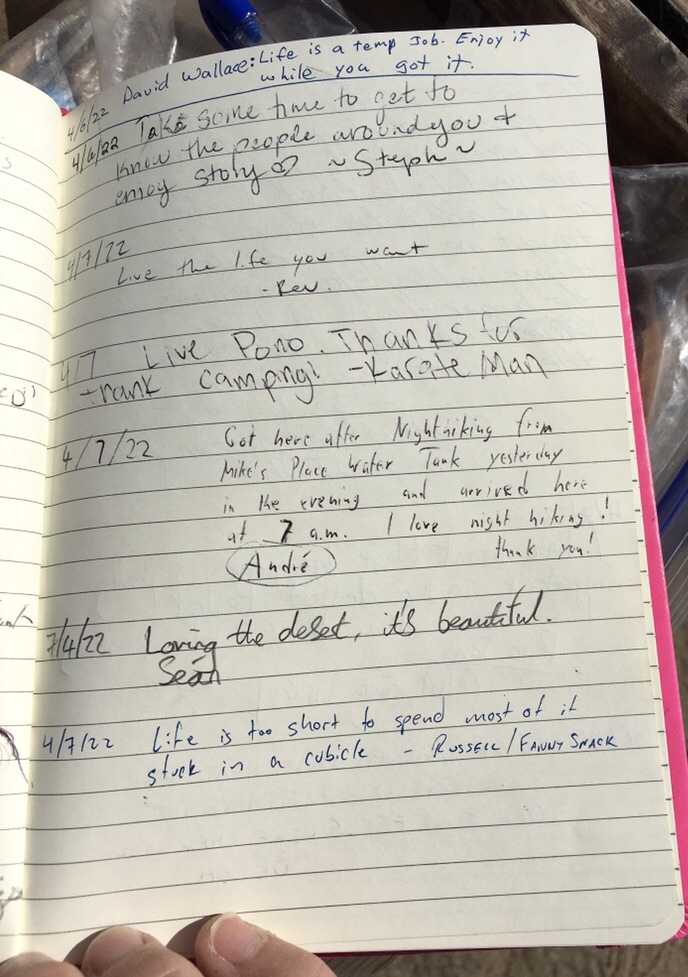 4/6/22 David Wallace: Life is a temp Job. Enjoy it
while you got it.
4/6/22 Take some time to get to
know the people around you +
enjoy story ♡ ~Steph~
4/7/22
Live the life you want
-Rev.
4/7 Live Pono. Thanks for
frank camping! -Karate Man
4/7/22 Got here after Nighthiking from
Mike's Place Water Tank yesterday
in the evening and arrived here
at 7 a.m. I love night hiking!
thank you!
André
7/4/22 Loving the deset, it's beautiful.
Seán
4/7/22 Life is too short to spend most of it
stuck in a cubicle - RUSSELL/FANNY SNACK